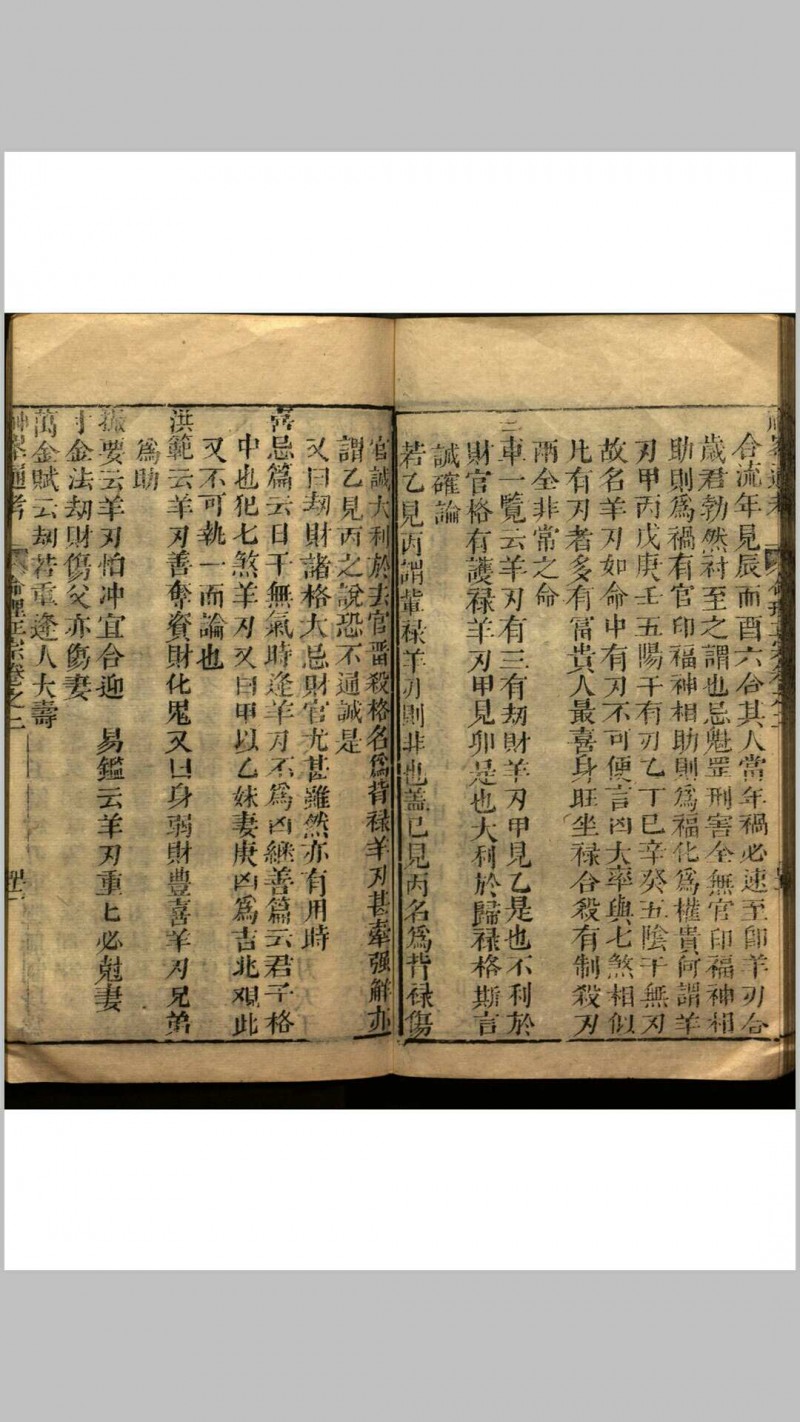 合流年見辰而酉六合其人當年禍必速至卽羊刃合
歲君勃然禍至之謂也忌魁罡刑害全無官印福神相
助則爲禍有官印福神相助則爲福化爲權貴何謂羊
刃甲丙戊庚壬五陽干有刃乙丁巳辛癸五陰干無刃
故名羊刃如命中有刃不可便言凶大率與七煞相似
凡有刃者多有富貴人最喜身旺坐祿合殺有制殺刃
兩全非常之命
三車一覽云羊刃有三有刼財羊刃甲見乙是也不利於
財官格有護祿羊刃甲見卯是也大利於歸祿格斯言
誠確論
若乙見丙謂軰祿羊刃則非也葢巳見丙名爲背祿傷
官誠大利於去官畱殺格名爲背祿羊刃甚牽强解亦
謂乙見丙之說恐不通誠是
又曰刼財諸格大忌財官尤甚雖然亦有用時
喜忌篇云日干無氣時逢羊刃不爲凶繼善篇云君子格
中也犯七煞羊刃又曰甲以乙妹妻庚凶爲吉兆觀此
又不可執一而論也
洪範云羊刃善奪資財化鬼又曰身弱財豊喜羊刃兄弟
爲助
要云羊刃怕冲宜合迎 易鑑云羊刃重匕必尅妻
寸金法刼財傷父亦傷妻
萬金賦云刼若重逢人夭壽
神峯通考 命理正宗卷之二